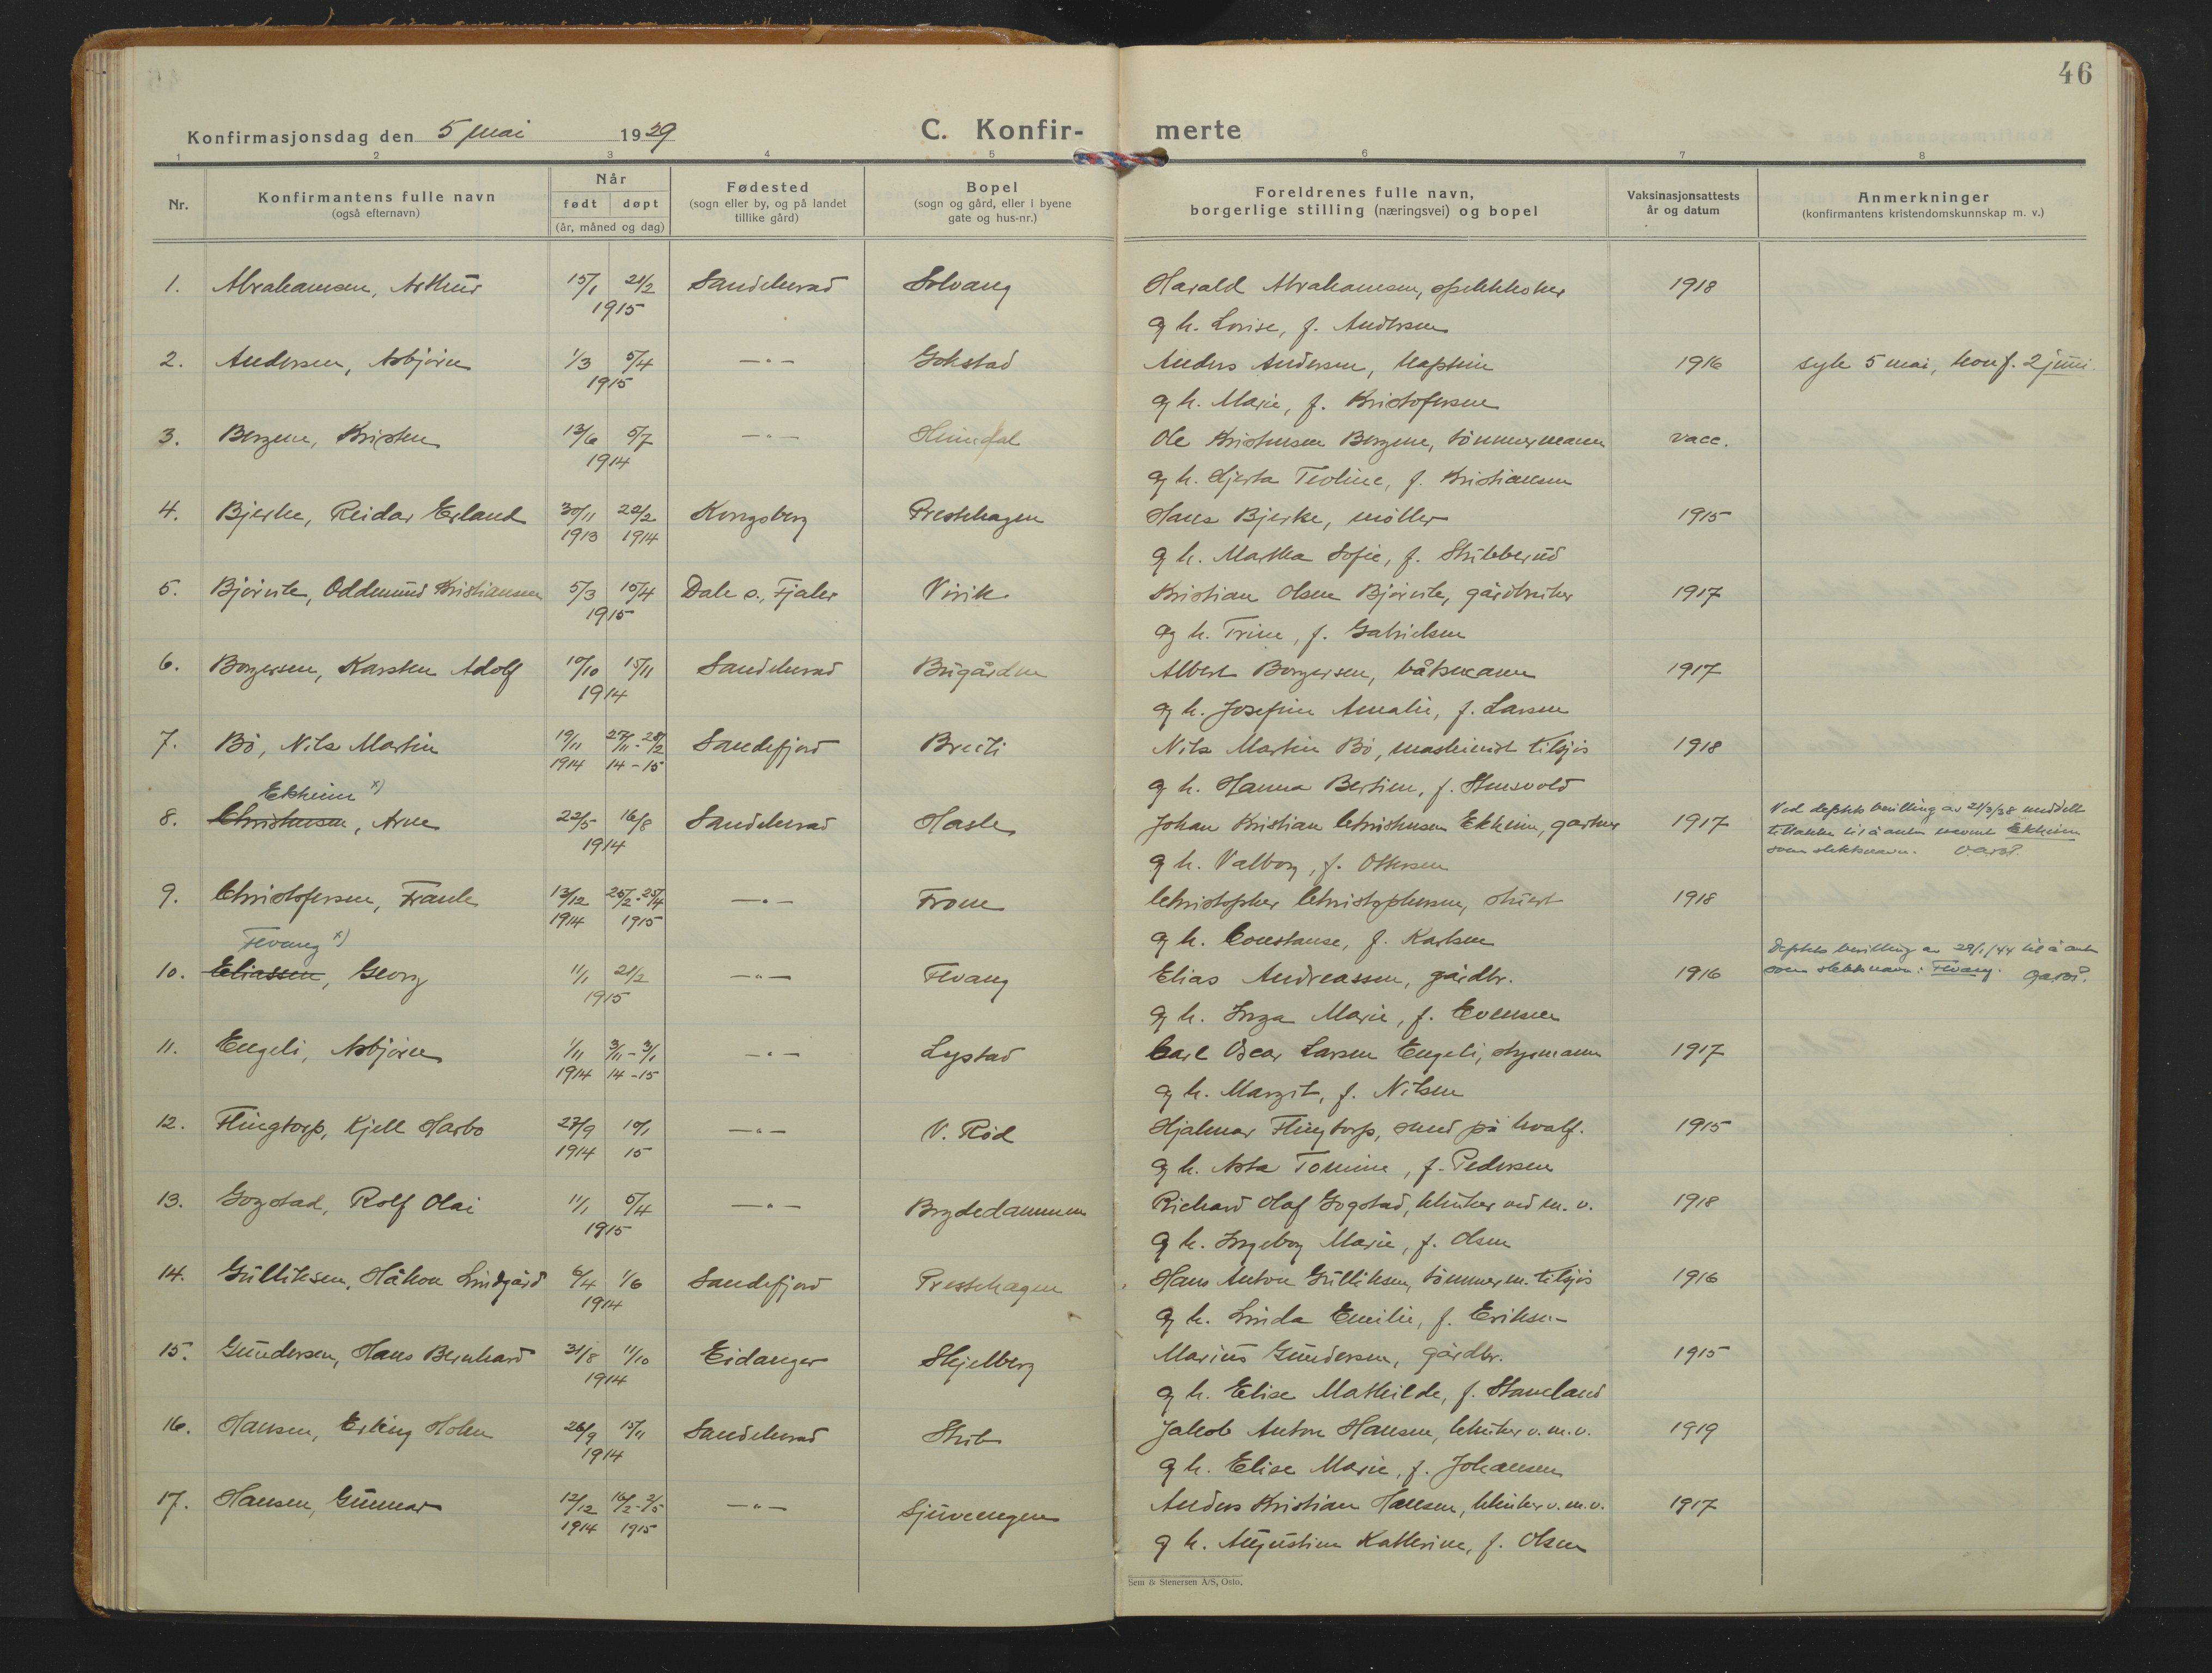 46
Konfirmasjonsdag den 5 mai 1929
C. Konfir- merte
1 2 3 4 5 6 7 8
Nr.
Konfirmantens fulle navn
(også efternavn)
Når
født døpt
(år, måned og dag)
Fødested
(sogn eller by, og på landet
tillike gård)
Bopel
(sogn og gård, eller i byene
gate og hus-nr.)
Foreldrenes fulle navn,
borgerlige stilling (næringsvei) og bopel
Vaksinasjonsattests
år og datum
Anmerkninger
(konfirmantens kristendomskunnskap m. v.)
1. Abrahamsen, Arthur 15/1 21/2 Sandeherad Solvang Harald Abrahamsen, spekkkoker 1918
1915
og h. Lovise, f. Andersen
2. Andersen, Asbjörn 1/3 5/4 —„— Gokstad Anders Andersen, kaptein 1916 syk 5 mai, konf. 2 juni.
1915
og h. Marie, f. Kristofersen
3. Bergene, Kristen 13/6 5/7 —„— Heimdal Ole Kristensen Bergene, tömmermann vacc.
1914
og h. Gjerta Teoline, f. Kristiansen
4. Bjerke, Reidar Erland 30/11 22/2 Kongsberg Prestehagen Hans Bjerke, möller 1915
1913 1914
og h. Martha Sofie, f. Stubberud
5. Björvik, Oddmund Kristiansen 5/3 15/4 Dale s., Fjaler Virik Kristian Olsen Björvik, gårdbruker 1917
1915
og h. Trine, f. Gabrielsen
6. Borgersen, Karsten Adolf 10/10 15/11 Sandeherad Bugården Albert Borgersen, båtsmann 1917
1914
og h. Josefine Amalie, f. Larsen
7. Bö, Nils Martin 19/11 27/11-28/2 Sandefjord Breili Nils Martin Bö, maskinist tilsjös 1918
1914 14-15
og h. Hanna Bertine, f. Stensvold
Ekheim x)
8. Christensen, Arne 22/5 16/8 Sandeherad Hasle Johan Kristian Christensen Ekheim, gartner 1917
1914
Ved depkts bevilling av 21/3/38 meddelt
tillatelse til å anta navnet Ekheim
som slektsnavn.
og h. Valborg, f. Ottersen
9. Christofersen, Frank 13/12 25/2-25/4 —„— From Christopher Christophersen, stuert 1918
1914 1915
og h. Constanse, f. Karlsen
Fevang x)
10. Eliassen, Georg 11/1 21/2 —„— Fevang Elias Andreassen, gårdbr. 1916
1915
Depkts bevilling av 29/1/44 til å anta
som slektsnavn: Fevang.
og h. Inga Marie, f. Evensen
11. Engeli, Asbjörn 1/11 3/11-3/1 —„— Lystad Carl Oscar Larsen Engeli, styrmann 1917
1914 14-15
og h. Margit, f. Nilsen
12. Flingtorp, Kjell Harbo 27/9 10/1 —„— V. Röd Hjalmar Flingtorp, smed på hvalf. 1915
1914 15
og h. Asta Tomine, f. Pedersen
13. Gogstad, Rolf Olai 11/1 5/4 —„— Brydedammen Richard Olaf Gogstad, bruker ved m. v. 1918
1915
og h. Ingeborg Marie, f. Olsen
14. Gulliksen, Håkon Lindgård 6/4 1/6 Sandefjord Prestehagen Hans Anton Gulliksen, tömmerm. tilsjös 1916
1914
og h. Linda Emilie, f. Eriksen
15. Gundersen, Hans Bernhard 31/8 11/10 Eidanger Skjelberg Marius Gundersen, gårdbr. 1915
1914
og h. Elise Mathilde, f. Stamland
16. Hansen, Erling Holm 26/9 15/11 Sandeherad Stub Jakob Anton Hansen, v. m. v. 1919
1914
og h. Elise Marie, f. Johansen
17. Hansen, Gunnar 12/12 16/2-2/5 —„— Sjuvengen Anders Kristian Hansen, v. m. v. 1917
1914 1915
og h. Augustine Katherine, f. Olsen
Sem & Stenersen A/S, Oslo.